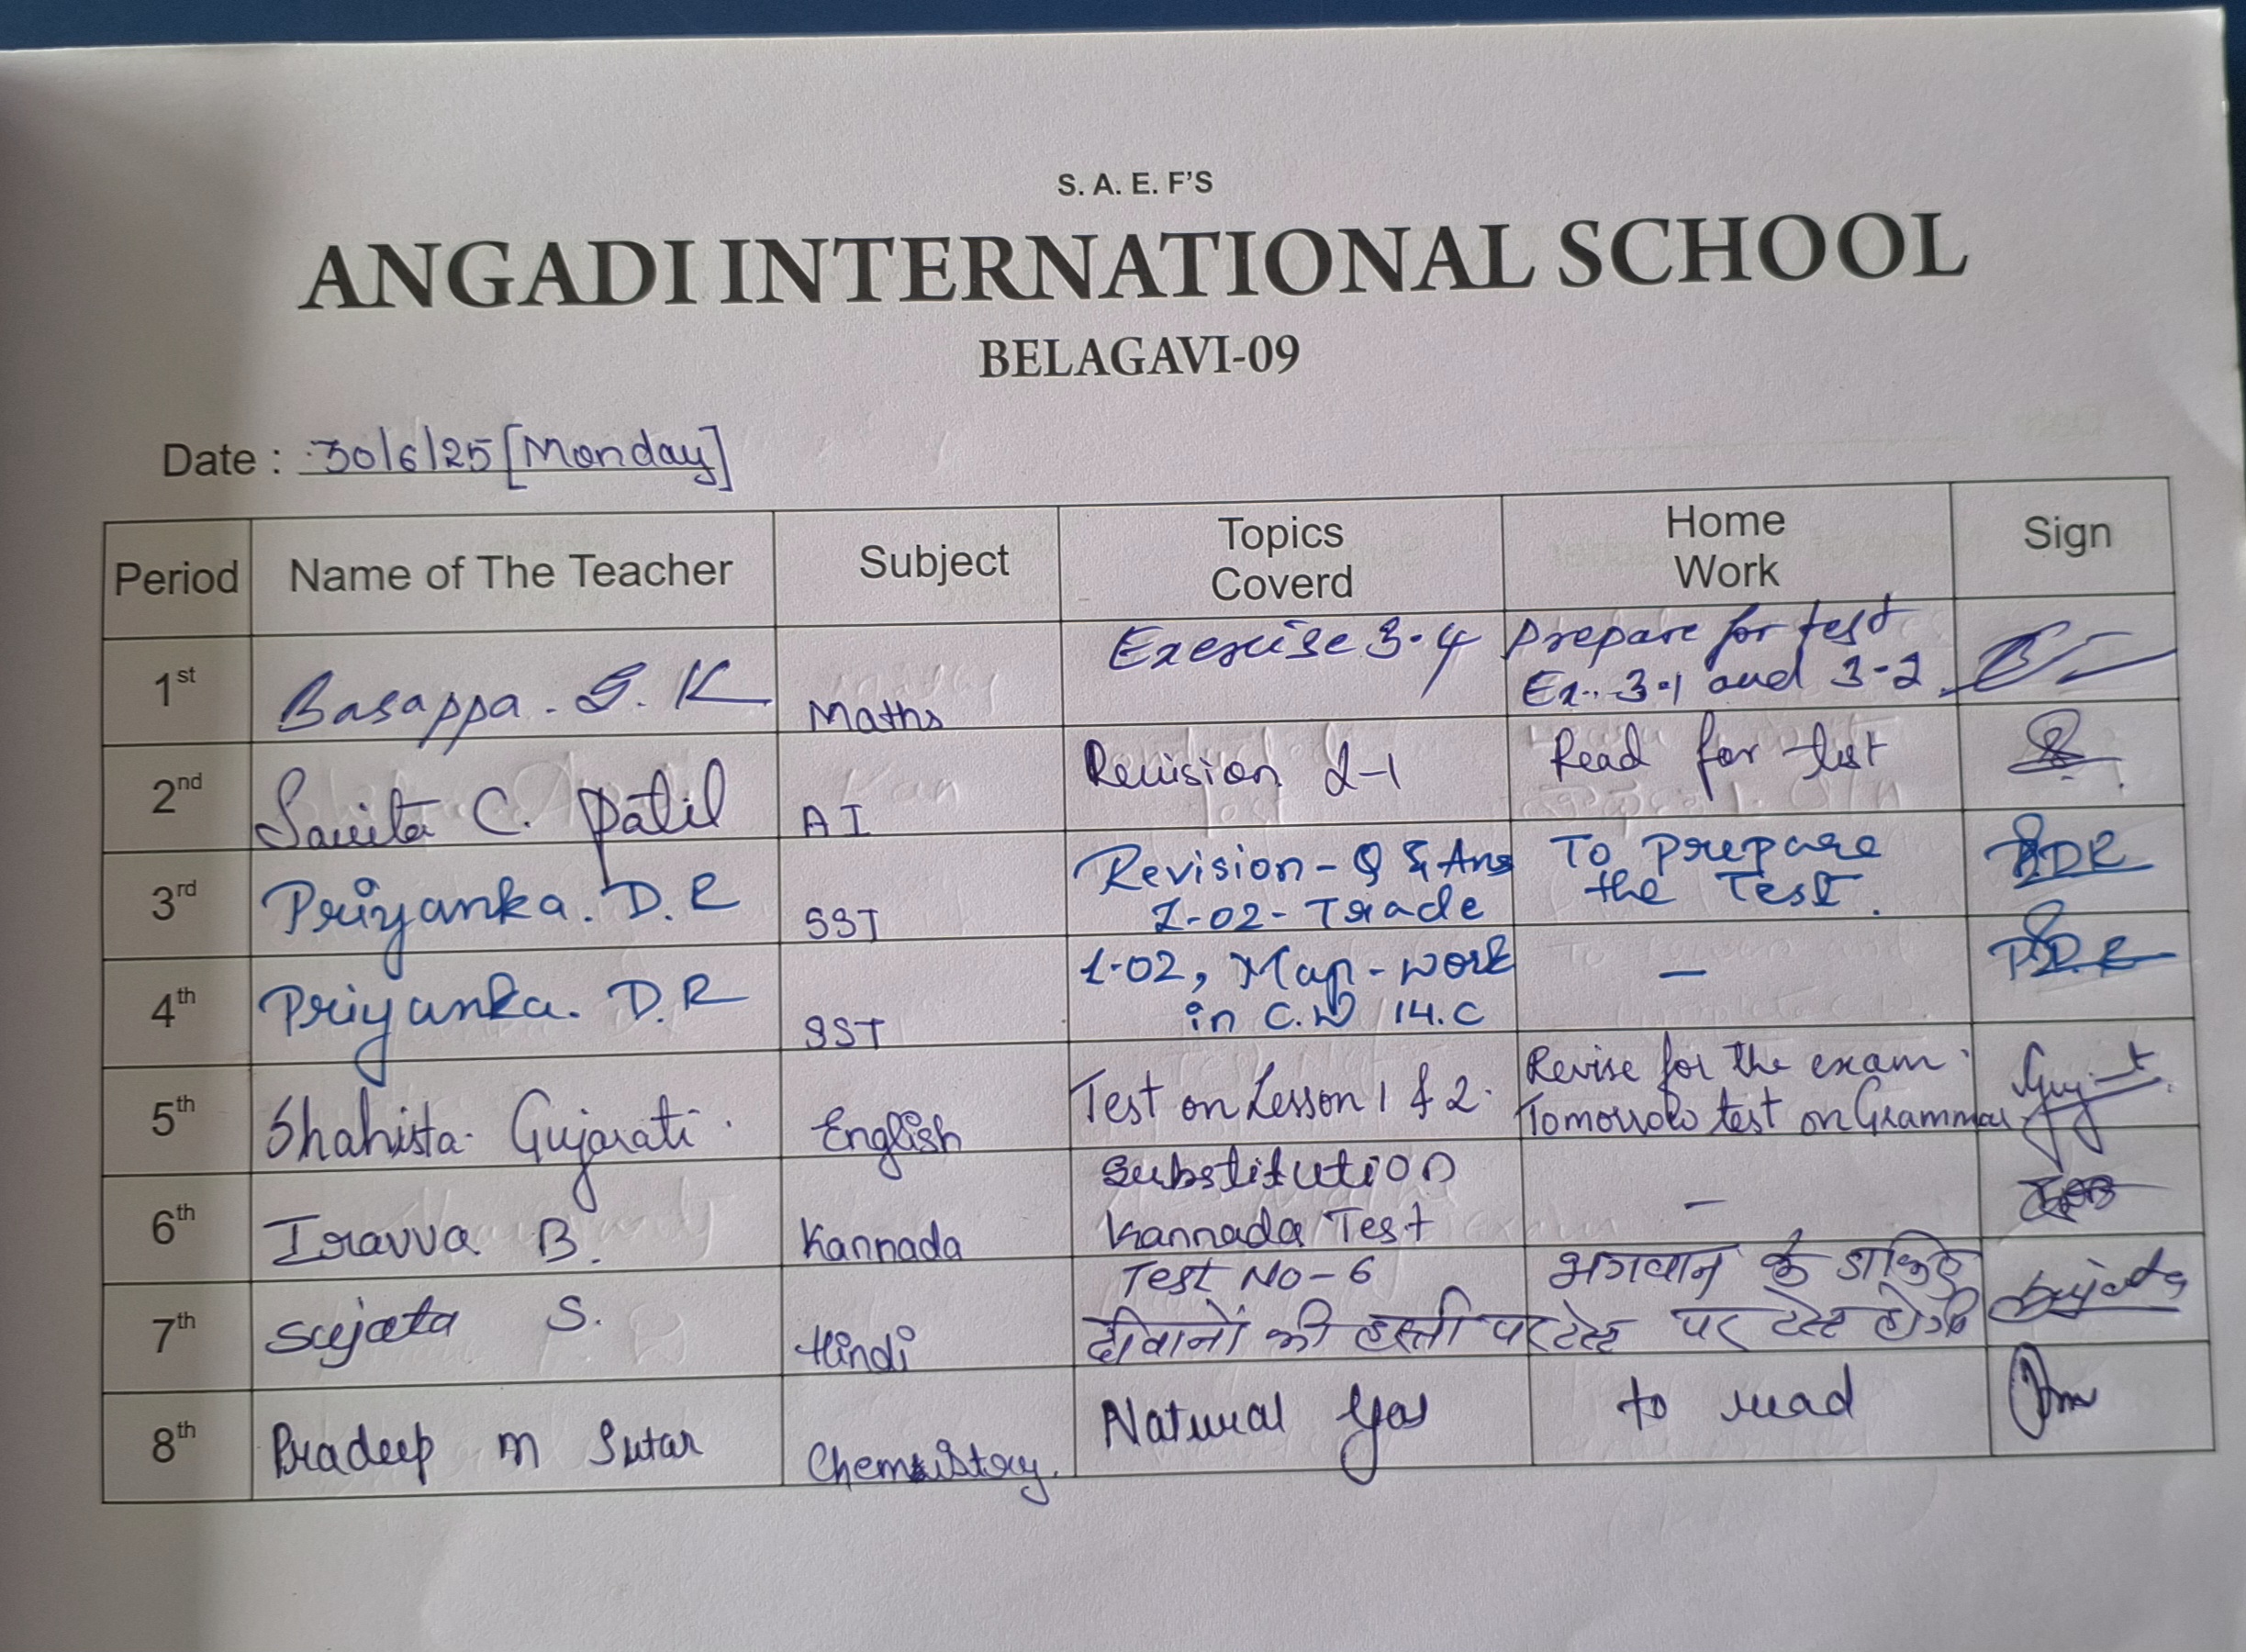 S. A. E. F'S
ANGADI INTERNATIONAL SCHOOL
BELAGAVI-09
Date : 30/6/25 [Monday]
Period Name of The Teacher Subject Topics Coverd Home Work Sign
1st Basappa. G. K Maths Exercise 3.4 Prepare for test
Ex. 3.1 and 3-2
2nd Savita C. Patil AI Revision L-1 Read for test
3rd Priyanka. D. R SST Revision - Q & Ans To prepare
L-02 - Trade the Test.
4th Priyanka. D. R SST L-02, Map-work –
in C.W 14.C
5th Shahista Gujarati. English Test on Lesson 1 & 2. Revise for the exam.
Tomorrow test on Grammar
6th Iravva B. Kannada Substitution –
Kannada Test
7th Sujata S. Hindi Test No-6 भगवान के डाकिए
दीवानों की हस्ती पर टेस्ट पर टेस्ट होगी
8th Pradeep M Sutar Chemistry. Natural gas to read